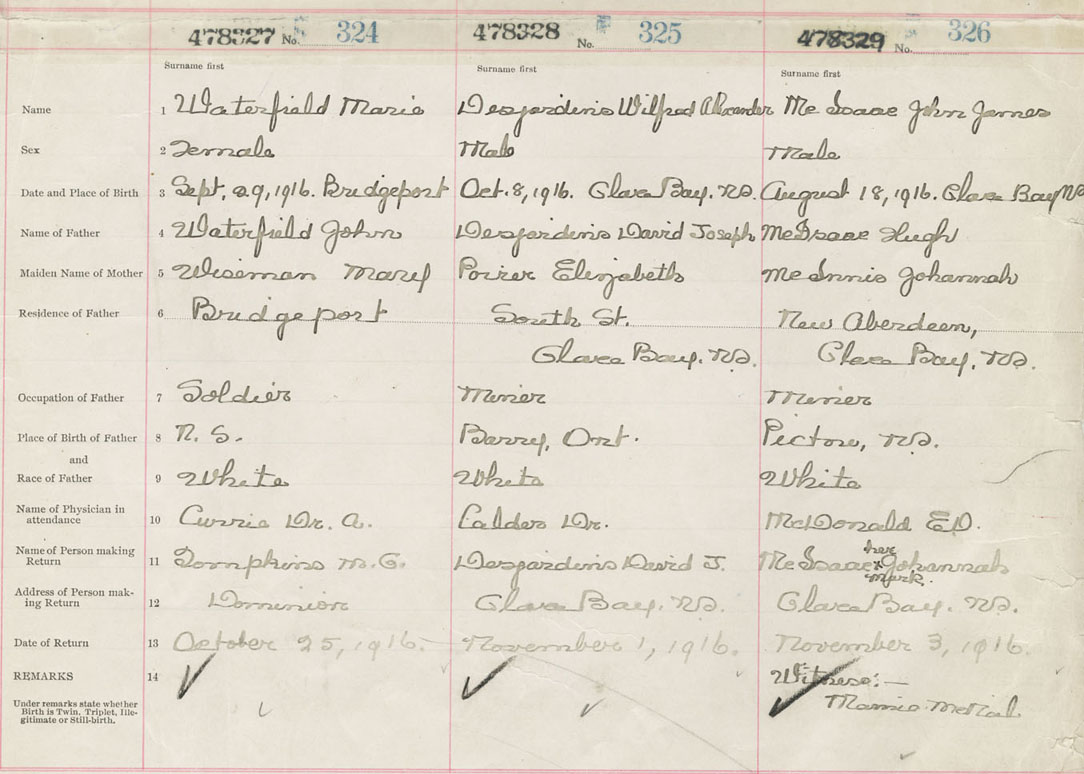 478327 No. 324 478328 No. 325 478329 No. 326
Surname first Surname first Surname first
Name 1 Waterfield Marie Desjardins Wilfred Alexander McIsaac John James
Sex 2 Female Male Male
Date and Place of Birth 3 Sept. 29, 1916. Bridgeport Oct. 8, 1916. Glace Bay. NS. August 18, 1916. Glace Bay NS
Name of Father 4 Waterfield John Desjardins David Joseph McIsaac Hugh
Maiden Name of Mother 5 Wiseman Mary Poirer Elizabeth McInnis Johannah
Residence of Father 6 Bridgeport South St. New Aberdeen,
Glace Bay. NS. Glace Bay. NS.
Occupation of Father 7 Soldier Miner Miner
Place of Birth of Father 8 N. S. Barry, Ont. Pictou, NS.
and
Race of Father 9 White White White
Name of Physician in
attendance 10 Currie Dr. A. Calder Dr. McDonald E.D.
Name of Person making
Return 11 Tompkins M. G. Desjardins David J. McIsaac her x mark. Johannah
Address of Person mak-
ing Return 12 Dominion Glace Bay. NS. Glace Bay. NS.
Date of Return 13 October 25, 1916. November 1, 1916. November 3, 1916.
REMARKS 14 Witness:—
Under remarks state whether
Birth is Twin, Triplet, Ille-
gitimate or Still-birth.
Mamie McNeil